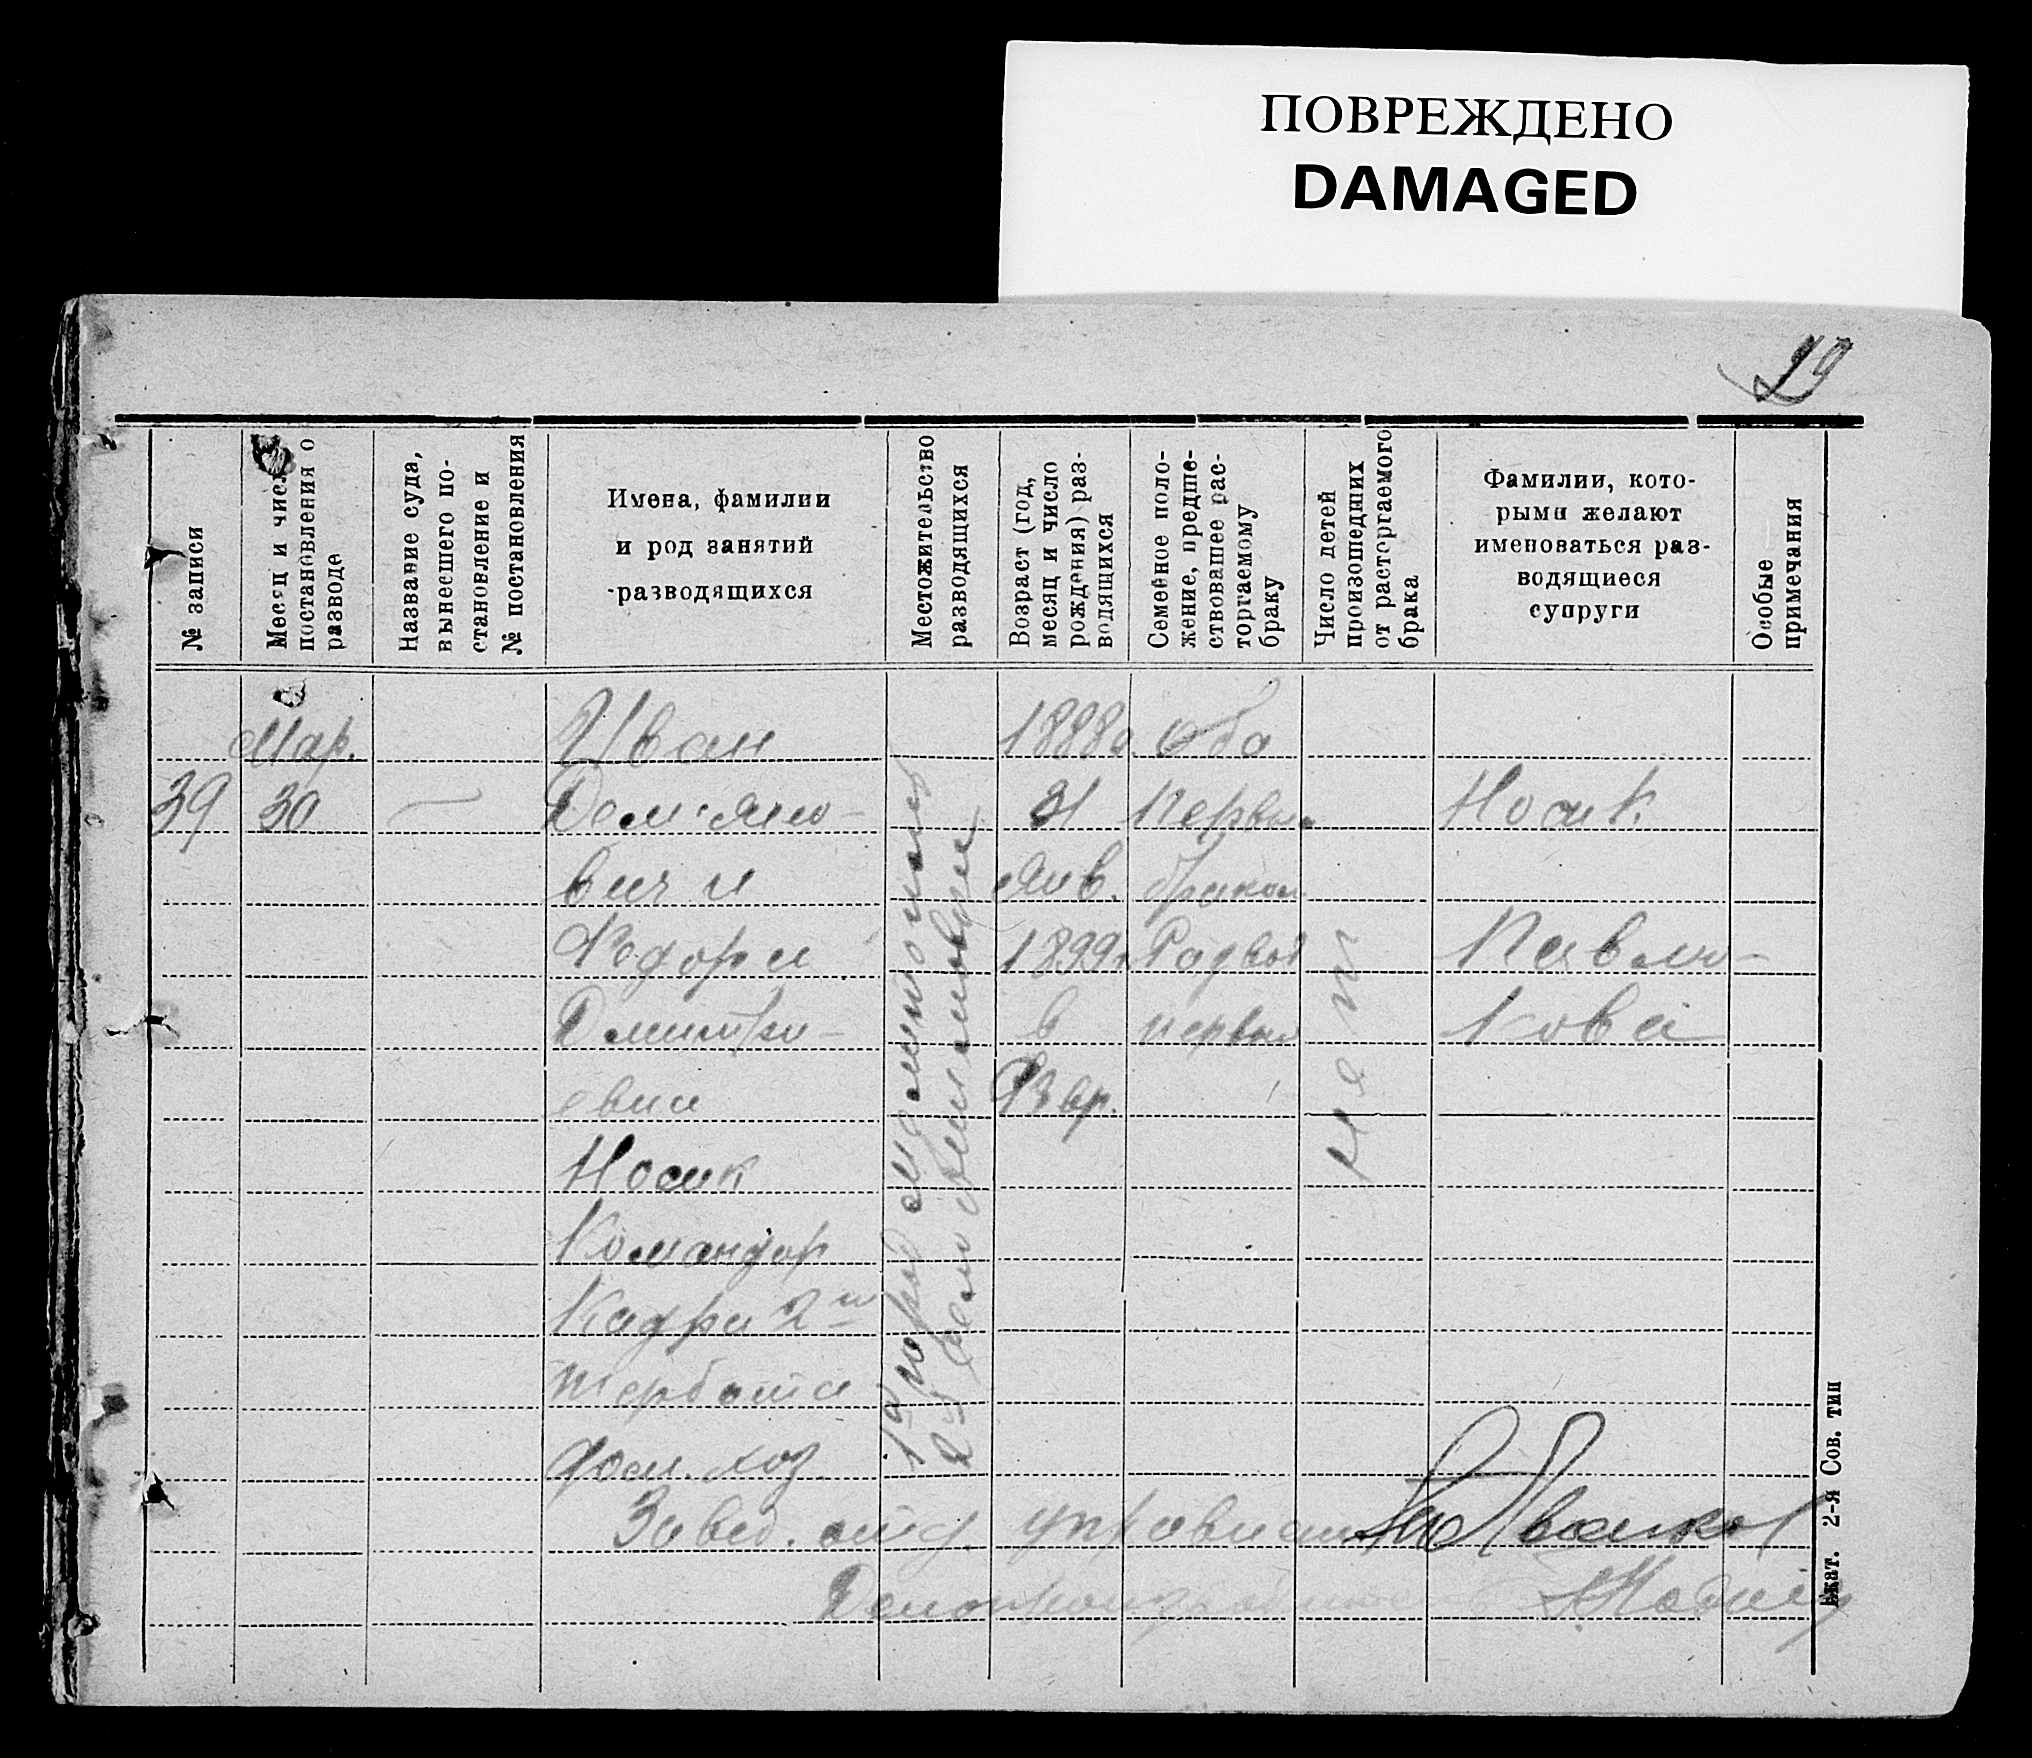 ПОВРЕЖДЕНО
DAMAGED
29
№ записи
Месяц и число
постановления о
разводе
Название суда,
вынесшего по-
становление и
№ постановления
Имена, фамилии
и род занятий
разводящихся
Местожительство
разводящихся
Возраст (год,
месяц и число
рождения) раз-
водящихся
Семейное поло-
жение, предше-
ствовавшее рас-
торгаемому
браку
Число детей
происшедших
от расторгаемого
брака
Фамилии, кото-
рыми желают
именоваться раз-
водящиеся
супруги
Особые
примечания
Мар.
39 30
Иван
Демьяно-
вич и
Федора
Дмитри-
евна
Носик
Командор
Кадра 2й
дом. хоз.
1й город
2й село
1888г.
31
Янв.
1899г.
в
Февр.
Оба
Первым
браком
Развод
первый
нет
Носик
Павлю-
кова
Завед. отд. управления
Делопроизводитель
2-я Сов. тип